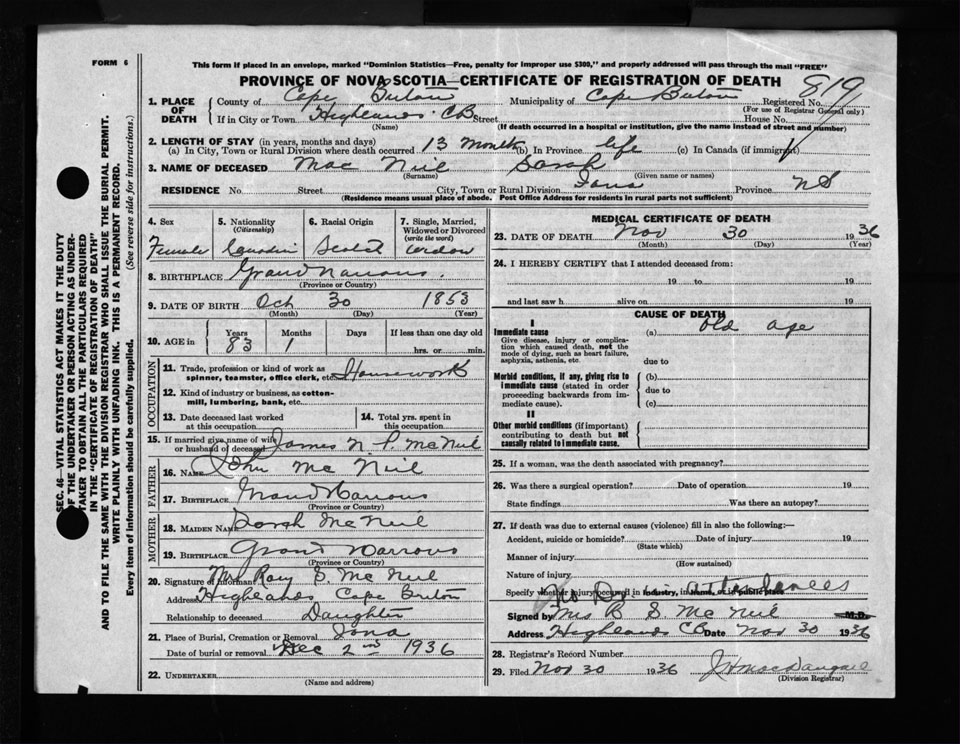 FORM 6
This form if placed in an envelope, marked "Dominion Statistics—Free, penalty for improper use $300," and properly addressed will pass through the mail "FREE"
PROVINCE OF NOVA SCOTIA—CERTIFICATE OF REGISTRATION OF DEATH
819
1. PLACE OF DEATH County of Cape Breton Municipality of Cape Breton Registered No.
(For use of Registrar General only)
If in City or Town Highlands. CB Street House No.
(Name) (If death occurred in a hospital or institution, give the name instead of street and number)
2. LENGTH OF STAY (in years, months and days)
(a) In City, Town or Rural Division where death occurred 13 Months (b) In Province life (c) In Canada (if immigrant)
3. NAME OF DECEASED Mac Neil Sarah
(Surname) (Given name or names)
RESIDENCE No. Street City, Town or Rural Division Iona Province NS
(Residence means usual place of abode. Post Office Address for residents in rural parts not sufficient)
4. Sex Female
5. Nationality (Citizenship) Canadian
6. Racial Origin Scotch
7. Single, Married, Widowed or Divorced (write the word) Widow
8. BIRTHPLACE Grand Narrows.
(Province or Country)
9. DATE OF BIRTH Oct 30 1853
(Month) (Day) (Year)
10. AGE in Years 83 Months 1 Days If less than one day old hrs. or min.
OCCUPATION
11. Trade, profession or kind of work as spinner, teamster, office clerk, etc. Housework
12. Kind of industry or business, as cotton-mill, lumbering, bank, etc.
13. Date deceased last worked at this occupation
14. Total yrs. spent in this occupation
15. If married give name of wife or husband of deceased James N. P. McNeil
FATHER
16. NAME John Mc Neil
17. BIRTHPLACE Grand Narrows
(Province or Country)
MOTHER
18. MAIDEN NAME Sarah McNeil
19. BIRTHPLACE Grand Narrows
(Province or Country)
20. Signature of informant Mrs Roy S. McNeil
Address Highlands Cape Breton
Relationship to deceased Daughter
21. Place of Burial, Cremation or Removal Iona
Date of burial or removal Dec 2nd 1936
22. UNDERTAKER
(Name and address)
MEDICAL CERTIFICATE OF DEATH
23. DATE OF DEATH Nov 30 1936
(Month) (Day) (Year)
24. I HEREBY CERTIFY that I attended deceased from:
19 to 19
and last saw h alive on 19
CAUSE OF DEATH
I
Immediate cause (a) old age
Give disease, injury or complication which caused death, not the mode of dying, such as heart failure, asphyxia, asthenia, etc.
due to
Morbid conditions, if any, giving rise to immediate cause (stated in order proceeding backwards from immediate cause).
(b)
due to
(c)
II
Other morbid conditions (if important) contributing to death but not causally related to immediate cause.
25. If a woman, was the death associated with pregnancy?
26. Was there a surgical operation? Date of operation 19
State findings Was there an autopsy?
27. If death was due to external causes (violence) fill in also the following:—
Accident, suicide or homicide? Date of injury 19
(State which)
Manner of injury
(How sustained)
Nature of injury
Specify whether injury occurred in industry, in home, or in public place
No Dr. in attendance
Signed by Mrs R S McNeil M.D.
Address Highlands CB Date Nov 30 1936
28. Registrar's Record Number
29. Filed Nov 30 1936 J H MacDougall
(Division Registrar)
SEC. 46—VITAL STATISTICS ACT MAKES IT THE DUTY
OF THE UNDERTAKER OR PERSON ACTING AS UNDER-
TAKER TO OBTAIN ALL THE PARTICULARS REQUIRED
IN THE "CERTIFICATE OF REGISTRATION OF DEATH"
AND TO FILE THE SAME WITH THE DIVISION REGISTRAR WHO SHALL ISSUE THE BURIAL PERMIT.
WRITE PLAINLY WITH UNFADING INK. THIS IS A PERMANENT RECORD.
Every item of information should be carefully supplied. (See reverse side for instructions.)